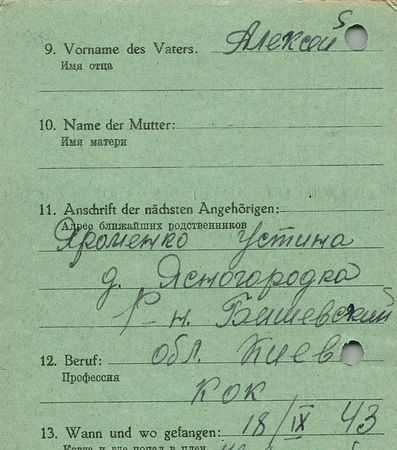 9. Vorname des Vaters. Алексей
Имя отца
10. Name der Mutter:
Имя матери
11. Anschrift der nächsten Angehörigen:
Адрес ближайших родственников
Яроменко Устина
д. Ясногородка
Р-н. Бышевский
12. Beruf: обл. Киев
Профессия
Кок
13. Wann und wo gefangen: 18/IX 43
Когда и где попал в плен